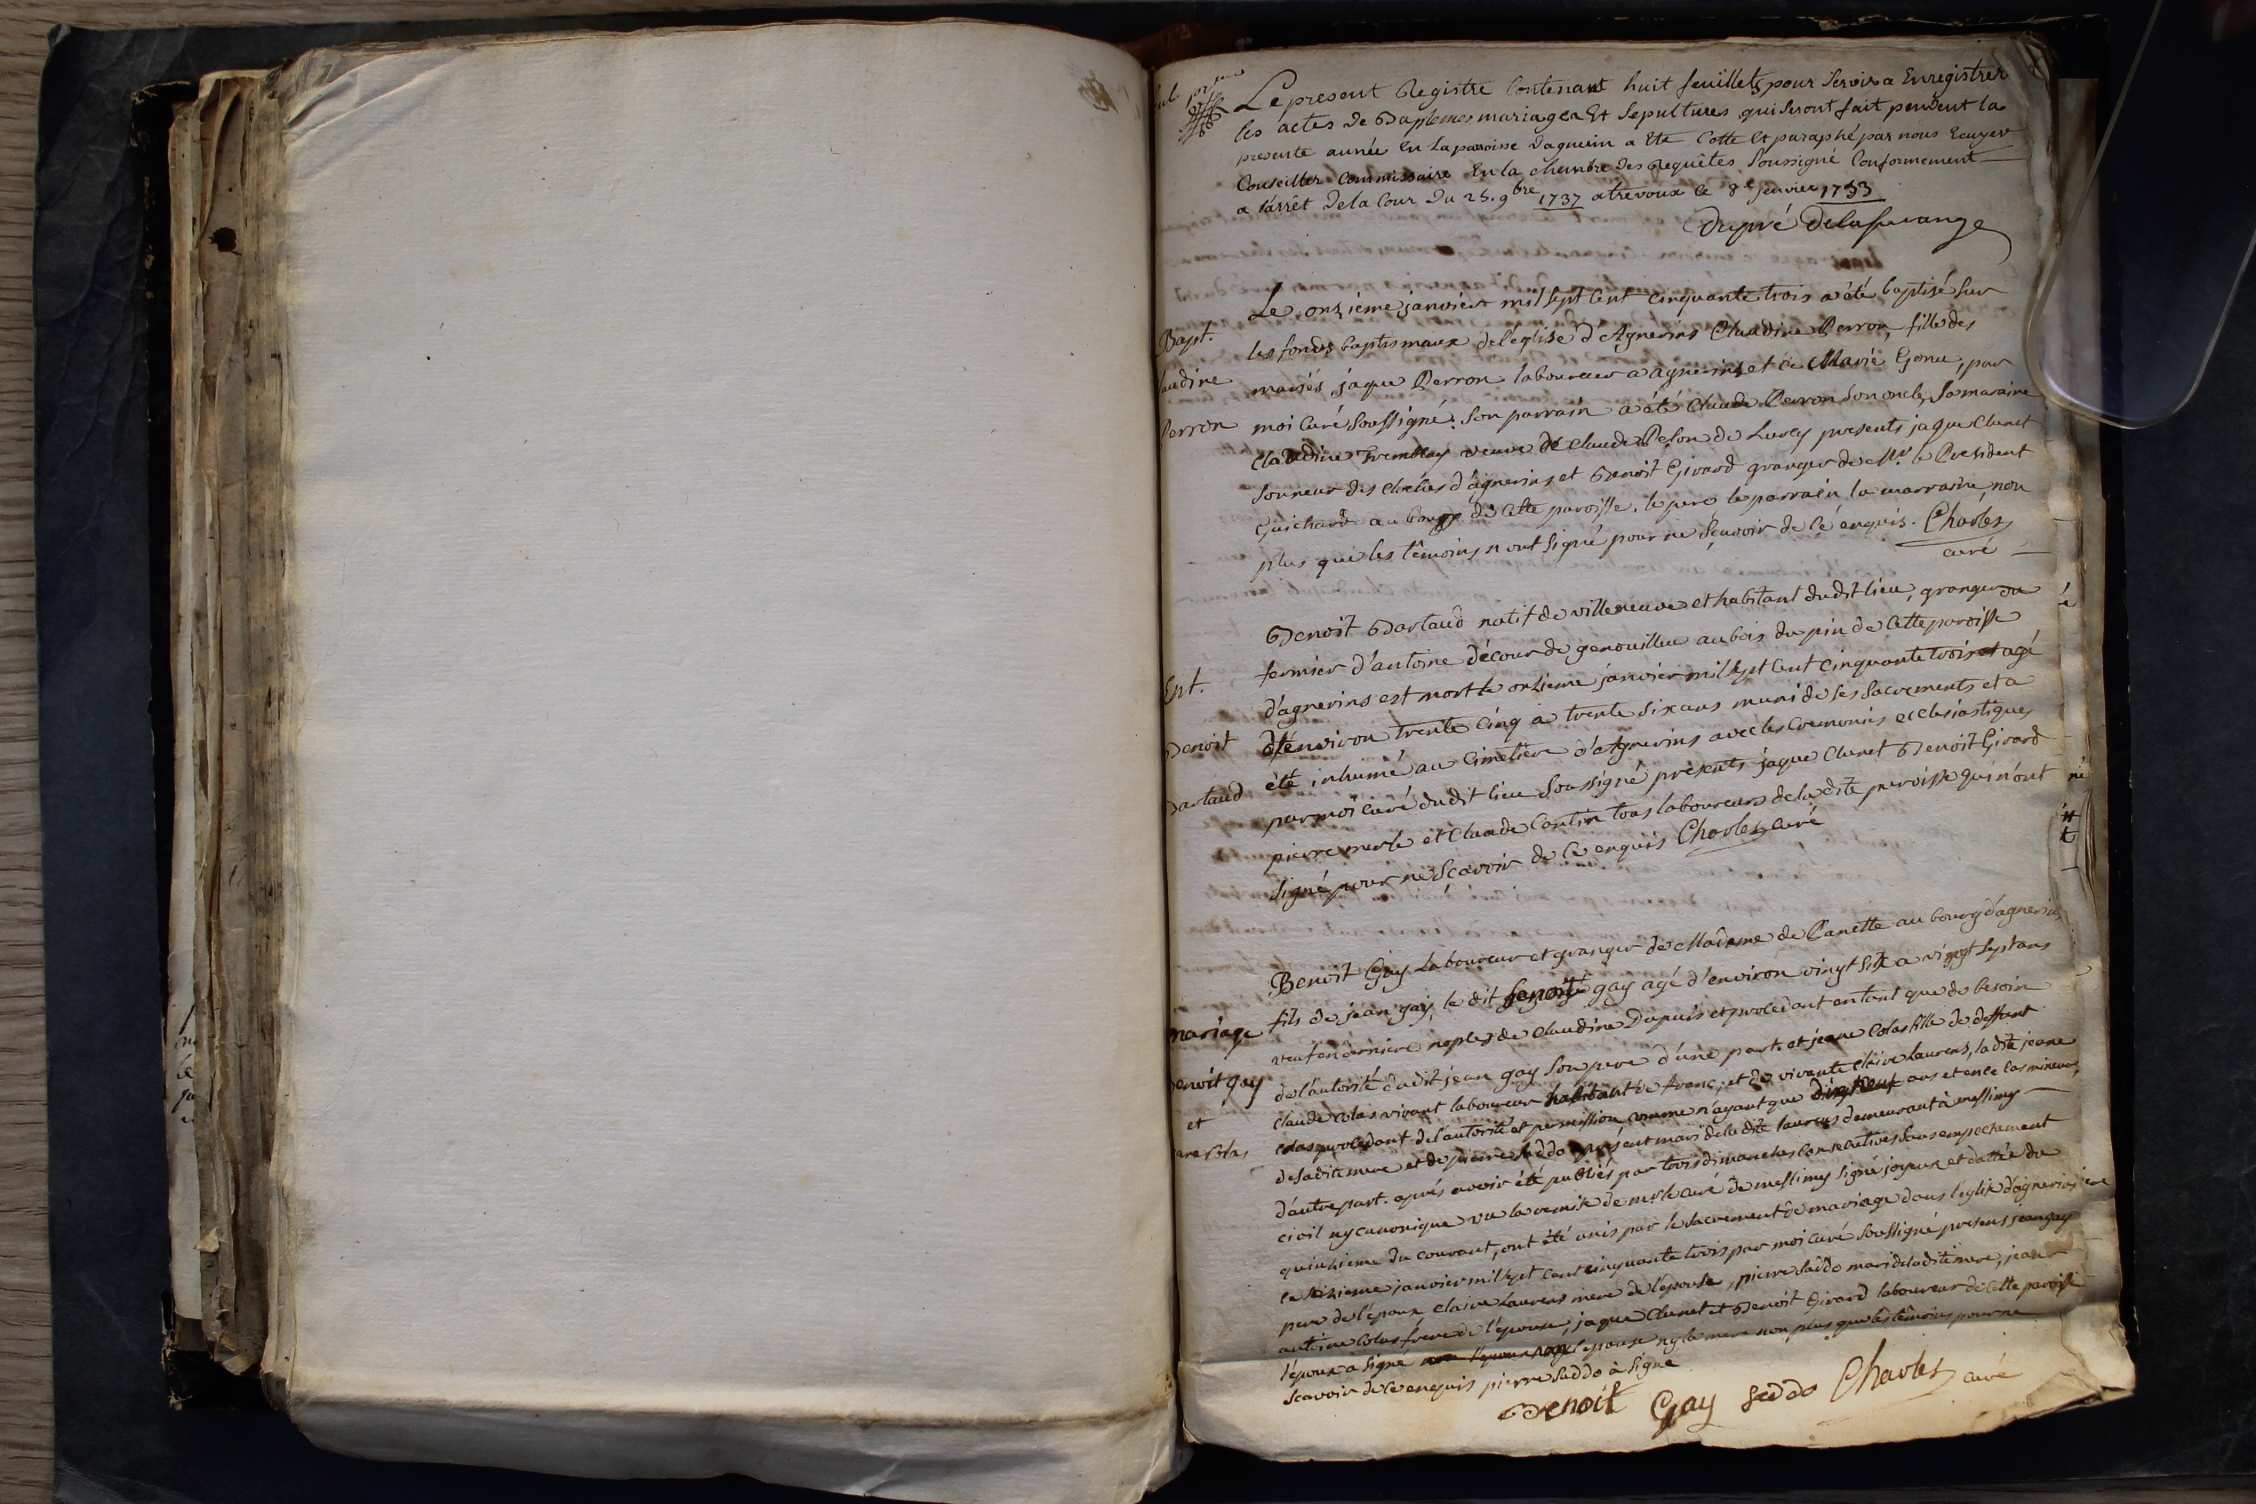 Le present Registre Contenant huit feuillets pour servir a Enregistrer
les actes de Baptemes mariages Et sepultures qui seront fait pendent la
presente année En la paroisse daguerin a Ete Cotte et paraphé par nous Ecuyer
Conseiller Commissaire En la chambre des Requêtes soussigné Conformement
a l'arrêt de la Cour du 25. 9bre 1737 a trevoux le 8e janvier 1753
Dupré
Bapt.
Le onzieme janvier mil sept cent cinquante trois a été baptisé sur
les fonds baptismaux de l'église d'Agnerins Claudine Perron, fille des
audine
mariés jaque Perron laboureur a agnerins et de Marie Gonu, par
Perron
moi curé soussigné. son parrain a été Claude Perron son oncle, sa maraine
Claudine Tremblay veuve de Claude Pelon de Lurcy presents jaque Clunet
sonneur des cloches d'agnerins et Benoit Girard granger de Mr. le President
Guichard au bourg de cette paroisse. le pere le parrain la marraine, non
plus que les témoins n'ont signé pour ne sçavoir de ce enquis. Charles
curé
Benoit Bartaud natif de villeneuve et habitant dudit lieu, granger ou
fermier d'antoine décour de genouilleu au bois du pin de cette paroisse
Ent.
d'agnerins est mort le onzieme janvier mil sept cent cinquante trois et agé
Benoit
d'environ trente cinq a trente six ans muni de ses sacrements et a
été inhumé au Cimetiere d'Agnerins avec les ceremonies ecclesiastiques
Bartaud
par moi curé dudit lieu soussigné presents jaque Clunet Benoit Girard
pierre merle et Claude Contin tous laboureurs de la dite paroisse qui n'ont
signé pour ne scavoir de ce enquis Charles curé
Benoit Gay laboureur et granger de Madame de Panette au bourg d'agnerins
fils de jean gay, le dit benoit gay agé d'environ vingt six a vingt sept ans
mariage
veuf en derniere noples de Claudine Dupuis et procedant en tant que de besoin
de l'autorité dudit jean gay son pere d'une part. et jeane Colas fille de deffunt
enoit gay
claude colas vivant laboureur habitant de franc, et de vivante Claire Laurens, la dite jeane
et
colas procedant de l'autorité et permission comme n'ayant que dix neuf ans et en ce cas mineure,
ane Colas
de sa dite mere et de pierre saddo present mari de la dite laurens demeurant à messimy
d'autre part. aprés avoir été publiés par trois dimanches consecutives sans empechement
civil ny canonique vu la remise de mr le curé de messimy signé joyeux et dattée du
quinzieme du courant, ont été unis par le sacrement de mariage dans l'eglise d'agnerins
ce seizieme janvier mil sept cent cinquante trois par moi curé soussigné presens jean gay
pere de l'époux Claire Laurens mere de l'épouse, pierre saddo mari de la dite mere, jean
antoine Colas frere de l'épouse, jaque Clunet et Benoit Girard laboureur de cette paroisse
l'époux a signé non l'epouse ny la mere non plus que les témoins pour ne
scavoir de ce enquis pierre Saddo à signé
Benoit Gay saddo Charles curé